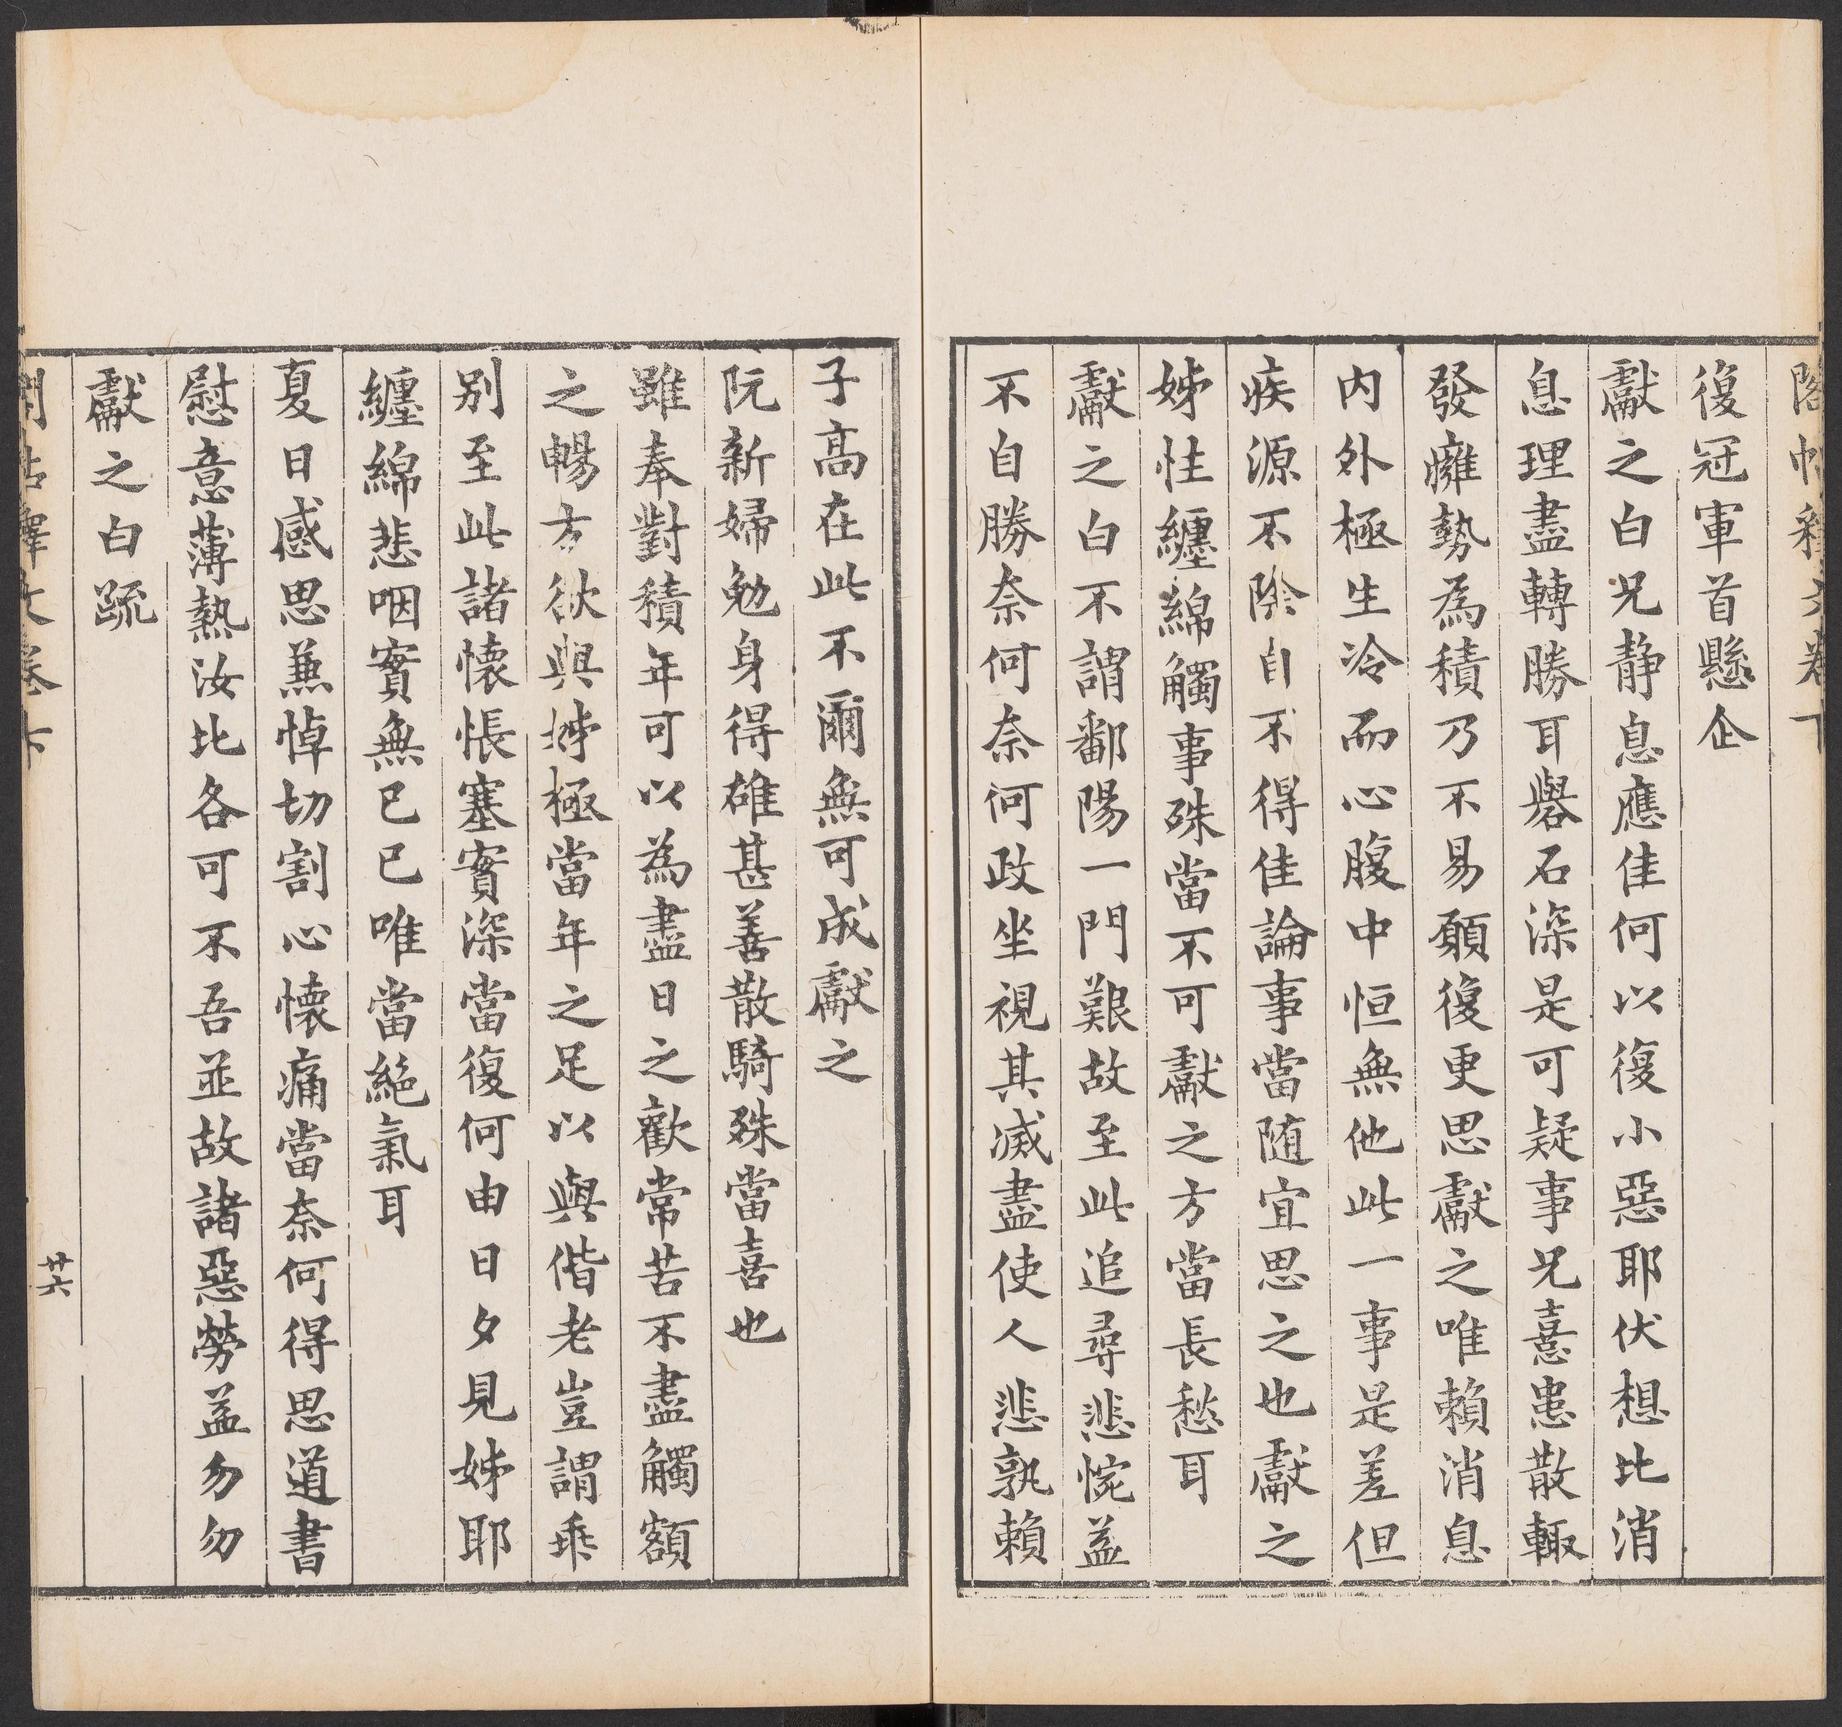 閣帖釋文卷下
復冠軍首懸企
獻之白兄静息應佳何以復小惡耶伏想比消
息理盡轉勝耳礜石深是可疑事兄憙患散輙
發癰勢為積乃不易願復更思獻之唯賴消息
内外極生冷而心腹中恒無他此一事是差但
疾源不除自不得佳論事當随宜思之也獻之
姊性纏綿觸事殊當不可獻之方當長愁耳
獻之白不謂鄱陽一門艱故至此追尋悲惋益
不自勝奈何奈何政坐視其滅盡使人悲孰賴
子高在此不爾無可成獻之
阮新婦勉身得雄甚善散騎殊當喜也
雖奉對積年可以為盡日之歡常苦不盡觸額
之暢方欲與姊極當年之足以與偕老豈謂乖
别至此諸懷悵塞實深當復何由日夕見姊耶
纏綿悲咽實無已已唯當絕氣耳
夏日感思兼悼切割心懷痛當奈何得思道書
慰意薄熱汝比各可不吾並故諸惡勞益勿勿
獻之白疏
閣帖釋文卷下
廿六